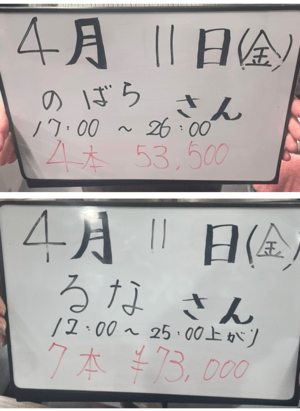 4月 11日(金)
のばら さん
17:00 ~ 26:00
4本 53,500
4月 11日(金)
るな さん
12:00~25:00上がり
7本 ¥73,000